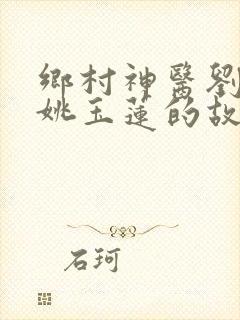 鄉村神醫劉
姚玉蓮的故
石珂